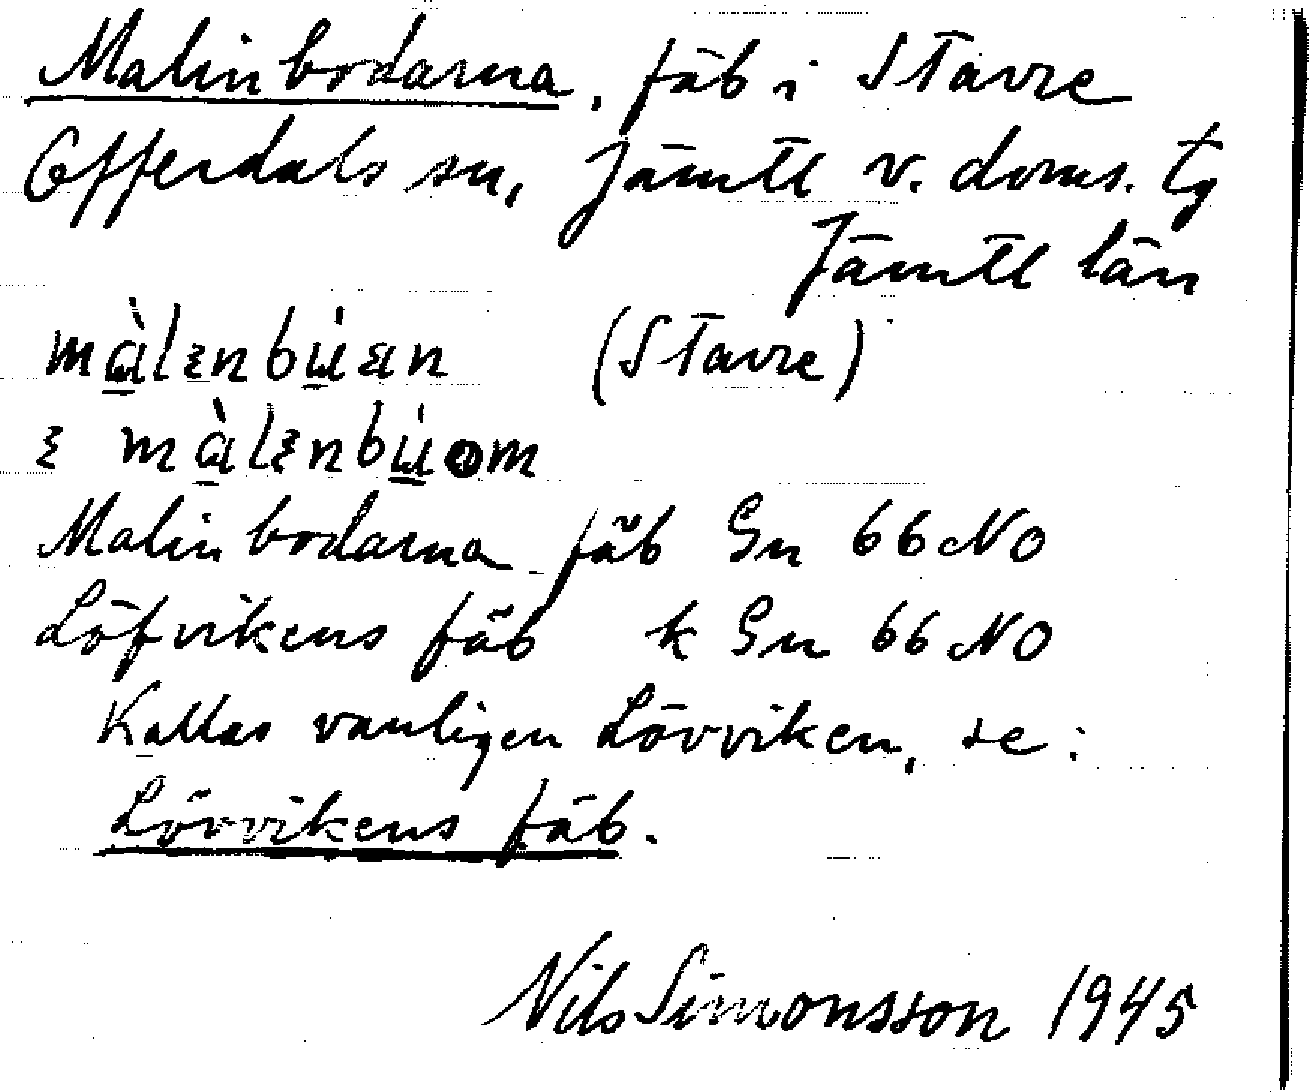 Malinbodarna, fäb i Stavre
Offerdals sn, Jämtl v. doms. tg
Jämtl län
(Stavre)
Malinbodarna fäb Gn 66 NO
Löfvikens fäb k Gn 66 NO
Kallas vanligen Lövviken, se:
Lövvikens fäb.
Nils Simonsson 1945